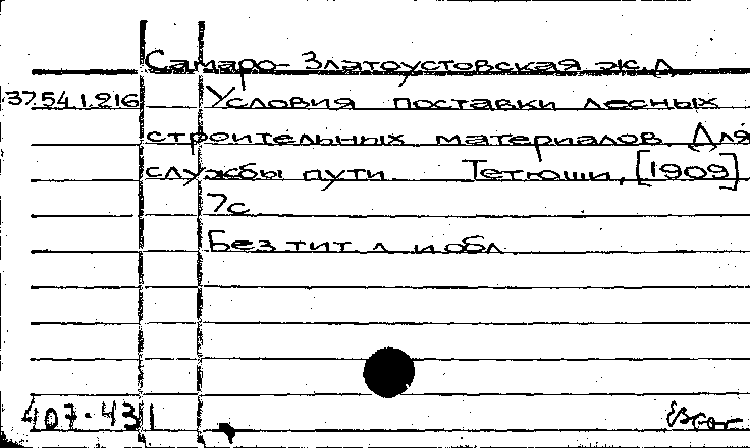 Самаро-Златоустовская ж.д
37.54.1.216 Условия поставки лесных
строительных материалов. Для
службы пути. Тетюши, [1909]
7с
Без тит л и обл
407-431